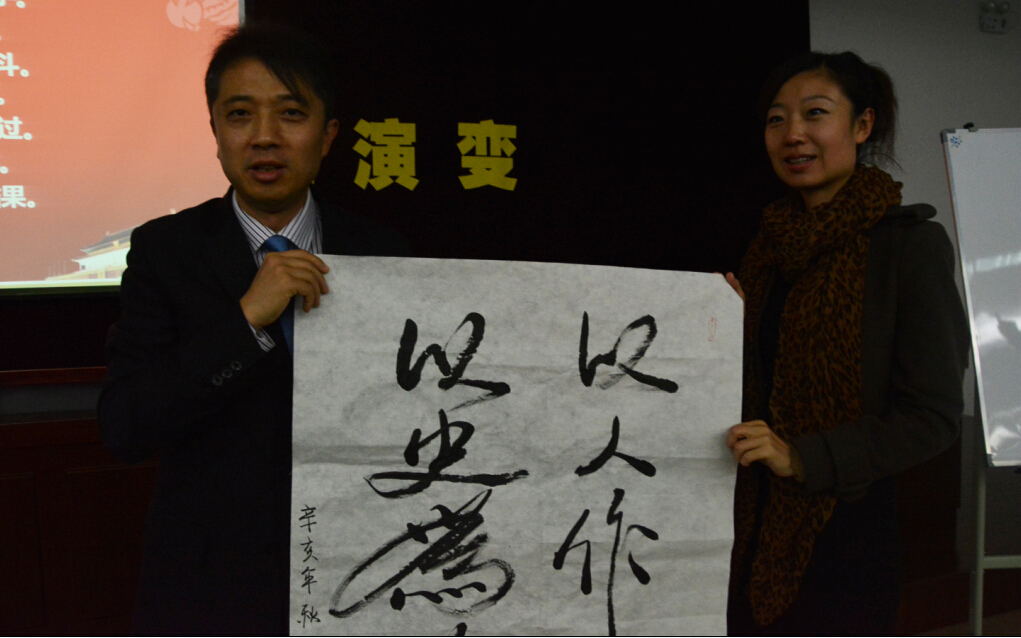 斗。
过。
果。
演变
以人作
以史為
辛亥年秋